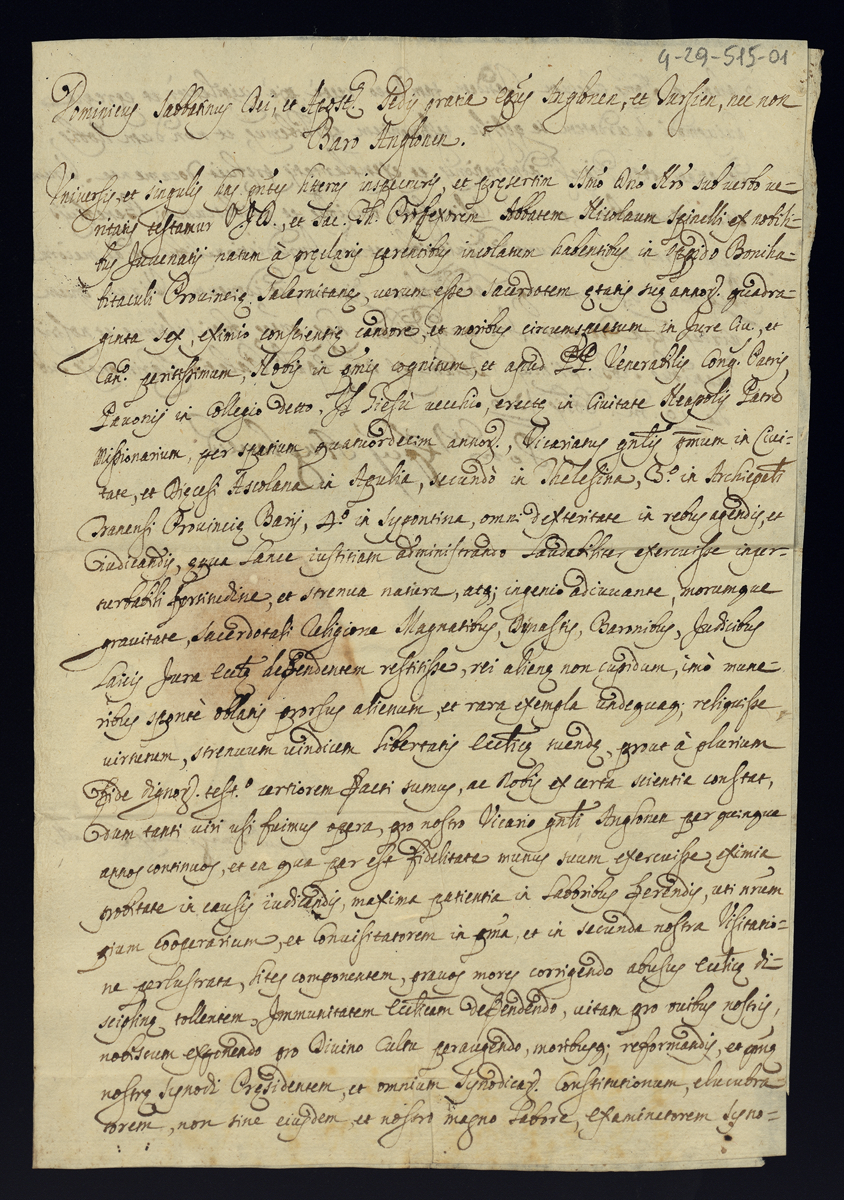 4-29-515-01
Dominicus Sabbatinus Dei, et Apost. Sedis gratia Epūs Anglonen, et Tursien, nec non
Baro Anglonen.
Universis, et singulis has pn̄tes literas inspecturis, et presertim Ill͞mo Dn̄o Nr̄o sub verbo ve-
ritatis testamur V.J.D., et Sac. Th. Professorem Abbatem Nicolaum Spinelli ex nobili-
bus Juvenatij natum à preclaris parentibus incolatum habentibus in oppido Boniha-
bitaculi Provincię Salernitanę, verum esse Sacerdotem ętatis suę annor. quadra-
ginta sex, eximio conscientię candore, et moribus circumspectum in Jure Civ., et
Can. peritissimum, Nobis in om̄is cognitum, et apud PP. Venerabilis Cong. Patris
Pavonis in Collegio detto, Il Giesù vecchio, erectę in Civitate Neapolis Patrū
Missionarium, per spatium quatuordecim annor., Vicariatus gn̄lis primum in Civi-
tate, et Diecesi Ascolana in Apulia, secundò in Thelesina, 3.o in Archiep̄ali
Tranensi Provincię Barij, 4.o in Sypontina, omni dexteritate in rebus agendis, et
iudicandis, ęqua Lance iustitiam administrando Laudabiliter exercuisse inper-
turbabili fortitudine, et strenua natura, atq; ingenio adiuvante, morumque
gravitate, Sacerdotali Religione Magnatibus, Dynastis, Baronibus, Judicibus
Laicis Jura Eccłę defendentem restitisse, rei alienę non cupidum, imò mune-
ribus spontè oblatis prorsus alienum, et rara exempla undequaq; reliquisse
virtutum, strenuum vindicem Libertatis Eccłicę tuendę, prout à plurium
fide dignor. test.o certiorem facti sumus, ac Nobis ex certa scientia constat,
dum tanti viri usi fuimus opera, pro nostro Vicario gn̄li Anglonen per quinque
annos continuos, et ea qua par est fidelitate munus suum exercuisse, eximia
probitate in causis iudicandis, maxima patientia in Laboribus ferendis, uti nr̄um
pium Cooperarium, et Convisitatorem in pm̄a, et in secunda nostra Visitatio-
ne perlustrata, lites componentem, pravos mores corrigendo abusus Eccłicę di-
sciplinę tollentem, Jmmunitatem Eccłicam defendendo, vitam pro ovibus nostris,
nobiscum exponendo pro Divino Cultu peraugendo, moribusq; reformandis, et
nostrę synodi Presidentem, et omnium Synodicar. Constitutionum, elucubra-
torem, non sine eiusdem, et nostro magno Labore, Examinatorem Syno-